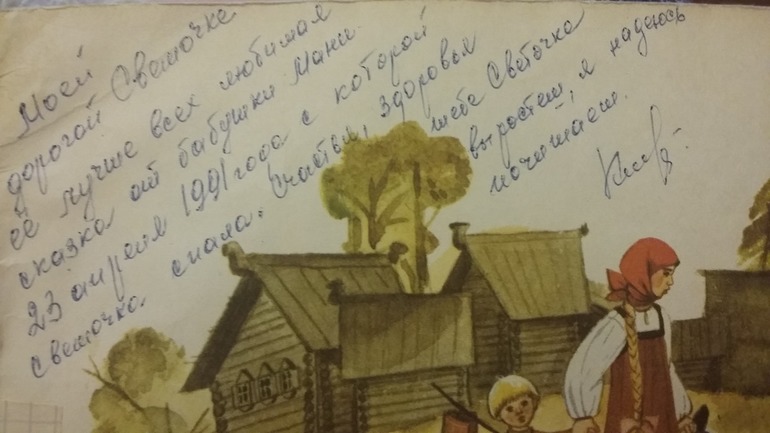 Моей
дорогой Светочке
её лучше всех любимая
сказка от бабушки Мани.
23 апреля 1991 года с которой
Светочка спала. Счастья, здоровья
тебе Светочка
выростеш, я надеюсь
почитаеш.